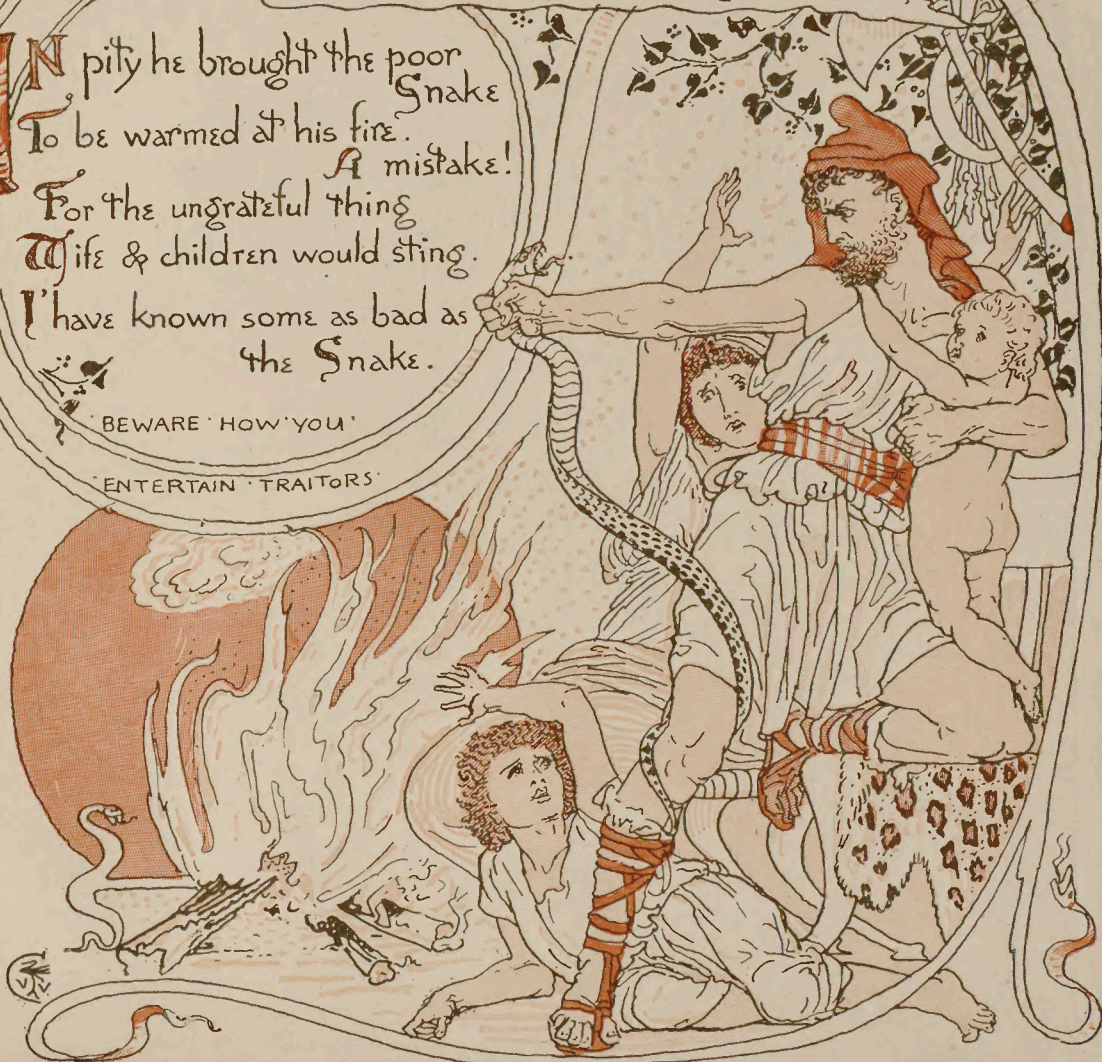 IN pity he brought the poor
Snake
To be warmed at his fire.
A mistake!
For the ungrateful thing
Wife & children would sting.
I'have known some as bad as
the Snake.
BEWARE · HOW · YOU ·
· ENTERTAIN · TRAITORS ·